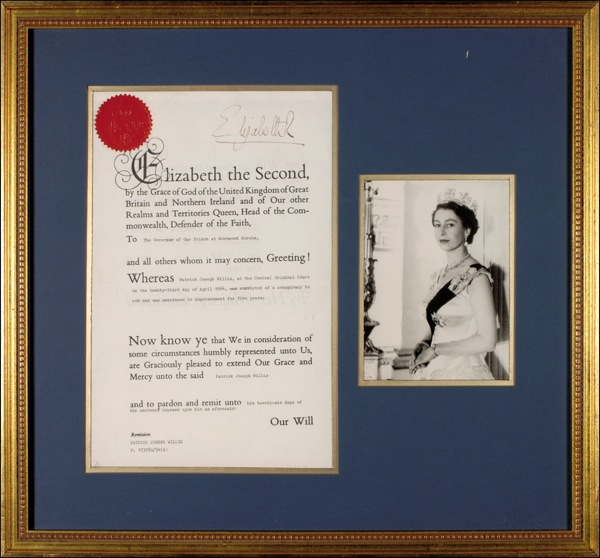 Elizabeth R
Elizabeth the Second,
by the Grace of God of the United Kingdom of Great
Britain and Northern Ireland and of Our other
Realms and Territories Queen, Head of the Com-
monwealth, Defender of the Faith,
To The Governor of Our Prison at Wormwood Scrubs,
and all others whom it may concern, Greeting!
Whereas Patrick Joseph Willis, at the Central Criminal Court
on the twenty-third day of April 1964, was convicted of a conspiracy to
rob and was sentenced to imprisonment for five years;
Now know ye that We in consideration of
some circumstances humbly represented unto Us,
are Graciously pleased to extend Our Grace and
Mercy unto the said Patrick Joseph Willis
and to pardon and remit unto him twenty-six days of
the sentence imposed upon him as aforesaid:
Our Will
Remission
PATRICK JOSEPH WILLIS